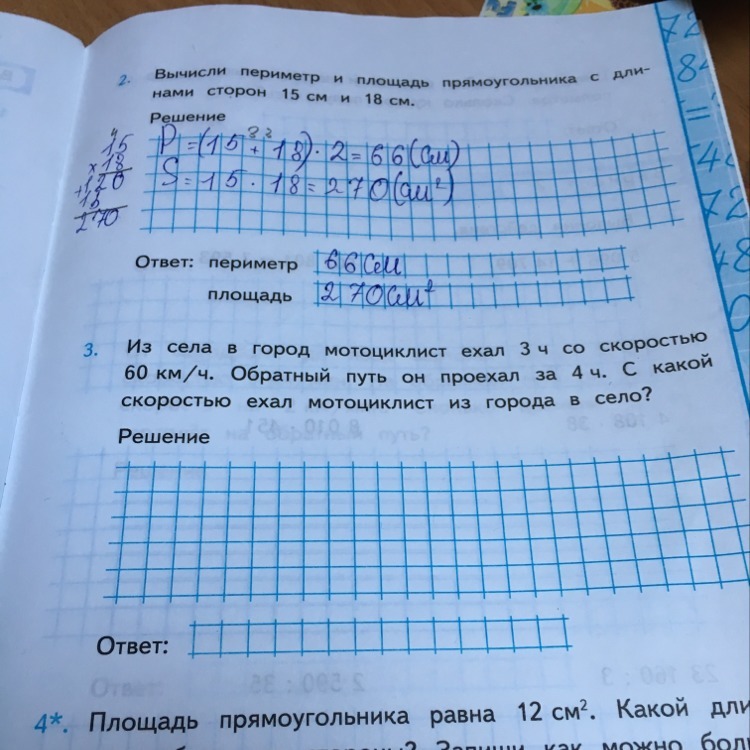 2. Вычисли периметр и площадь прямоугольника с дли-
нами сторон 15 см и 18 см.
Решение
P = (15 + 18) · 2 = 66 (см)
S = 15 · 18 = 270 (см²)
4
15
× 18
120
+ 15
270
Ответ: периметр 66 см
площадь 270 см²
3. Из села в город мотоциклист ехал 3 ч со скоростью
60 км/ч. Обратный путь он проехал за 4 ч. С какой
скоростью ехал мотоциклист из города в село?
Решение
Ответ:
4*. Площадь прямоугольника равна 12 см². Какой дли
Запиши, как можно боль